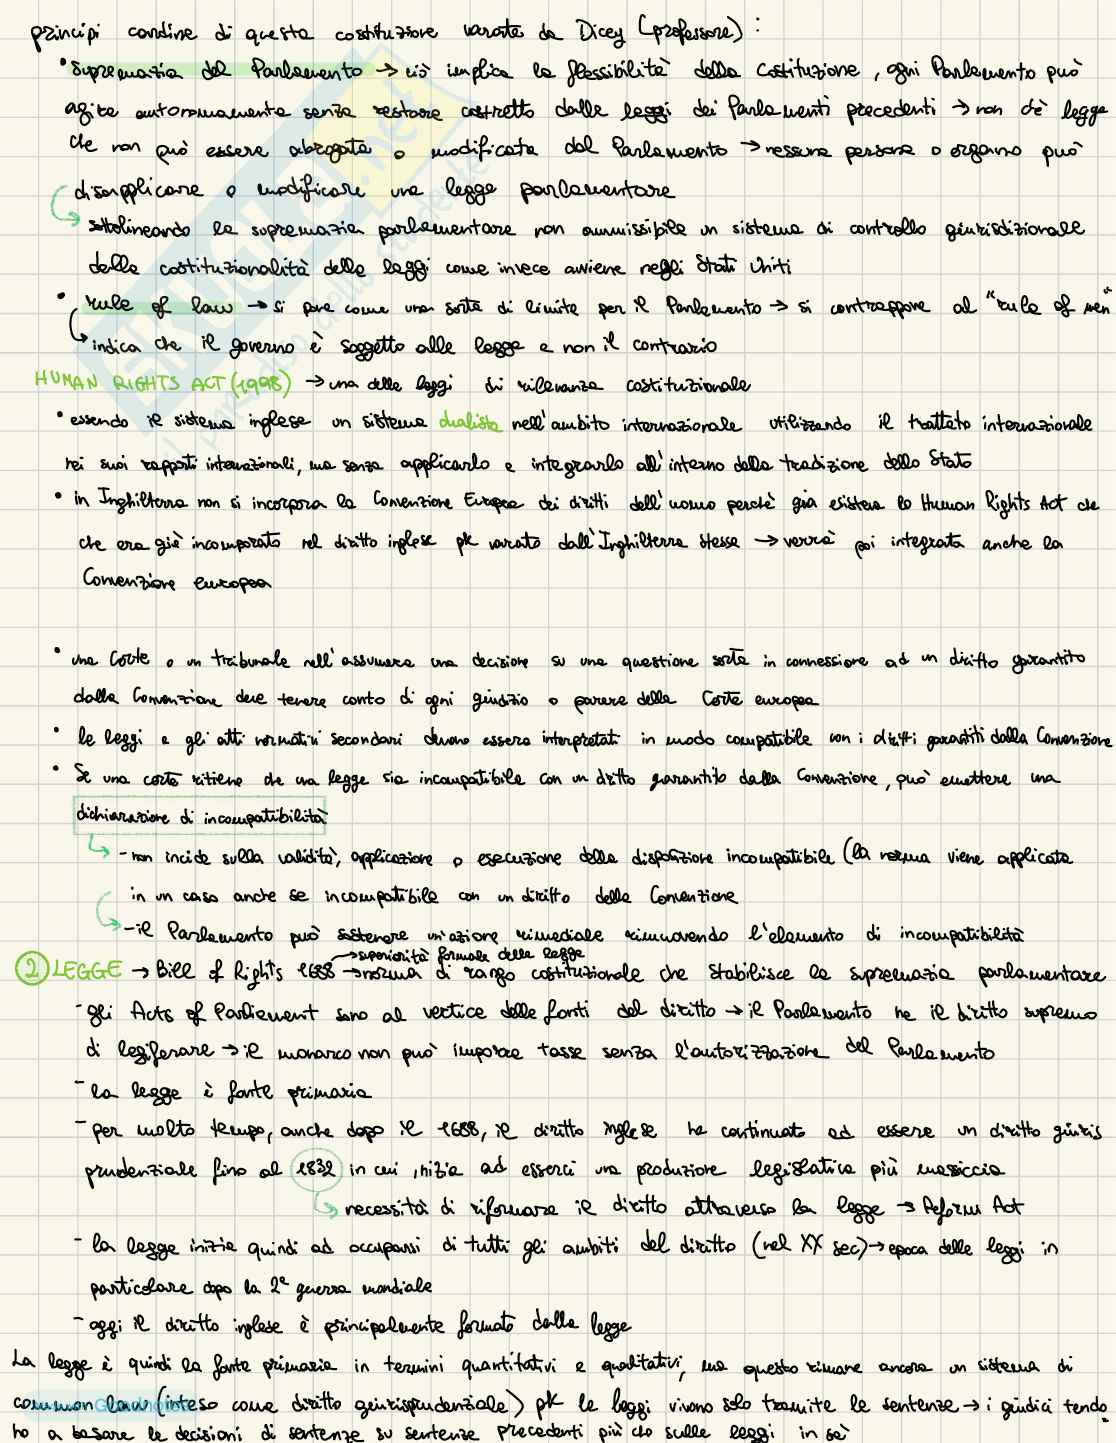 principi cardine di questa costituzione varata da Dicey (professore):
• supremazia del Parlamento → ciò implica la flessibilità della Costituzione, ogni Parlamento può
agire autonomamente senza restare costretto dalle leggi dei Parlamenti precedenti → non c'è legge
che non può essere abrogata o modificata dal Parlamento → nessuna persona o organo può
disapplicare o modificare una legge parlamentare
sottolineando la supremazia parlamentare non ammissibile un sistema di controllo giurisdizionale
della costituzionalità delle leggi come invece avviene negli Stati Uniti
• rule of law → si pone come una sorta di limite per il Parlamento → si contrappone al "rule of men"
indica che il governo è soggetto alle legge e non il contrario
HUMAN RIGHTS ACT (1998) → una delle leggi di rilevanza costituzionale
• essendo il sistema inglese un sistema dualista nell'ambito internazionale utilizzando il trattato internazionale
nei suoi rapporti internazionali, ma senza applicarlo e integrarlo all'interno della tradizione dello Stato
• in Inghilterra non si incorpora la Convenzione Europea dei diritti dell'uomo perchè già esisteva lo Human Rights Act che
che era già incorporato nel diritto inglese pk varato dall'Inghilterra stessa → verrà poi integrata anche la
Convenzione europea
• una Corte o un tribunale nell'assumere una decisione su una questione sorta in connessione ad un diritto garantito
dalla Convenzione deve tenere conto di ogni giudizio o parere della Corte europea
• le leggi e gli atti normativi secondari devono essere interpretati in modo compatibile con i diritti garantiti dalla Convenzione
• Se una corte ritiene che una legge sia incompatibile con un diritto garantito dalla Convenzione, può emettere una
dichiarazione di incompatibilità
- non incide sulla validità, applicazione o esecuzione della disposizione incompatibile (la norma viene applicata
in un caso anche se incompatibile con un diritto della Convenzione
- il Parlamento può sostenere un'azione rimediale rimuovendo l'elemento di incompatibilità
→ superiorità formale della legge
2 LEGGE → Bill of Rights 1688 → norma di rango costituzionale che stabilisce la supremazia parlamentare
- gli Acts of Parliement sono al vertice delle fonti del diritto → il Parlamento ha il diritto supremo
di legiferare → il monarca non può imporre tasse senza l'autorizzazione del Parlamento
- la legge è fonte primaria
- per molto tempo, anche dopo il 1688, il diritto inglese ha continuato ad essere un diritto giuris
prudenziale fino al 1832 in cui inizia ad esserci una produzione legislativa più massiccia
necessità di riformare il diritto attraverso la legge → Reform Act
- la legge inizia quindi ad occuparsi di tutti gli ambiti del diritto (nel XX sec) → epoca delle leggi in
particolare dopo la 2ª guerra mondiale
- oggi il diritto inglese è principalmente formato dalla legge
La legge è quindi la fonte primaria in termini quantitativi e qualitativi, ma questo rimane ancora un sistema di
common law (inteso come diritto geurisprudenziale) pk le leggi vivono solo tramite le sentenze → i giudici tendo
no a basare le decisioni di sentenze su sentenze precedenti più che sulle leggi in sè